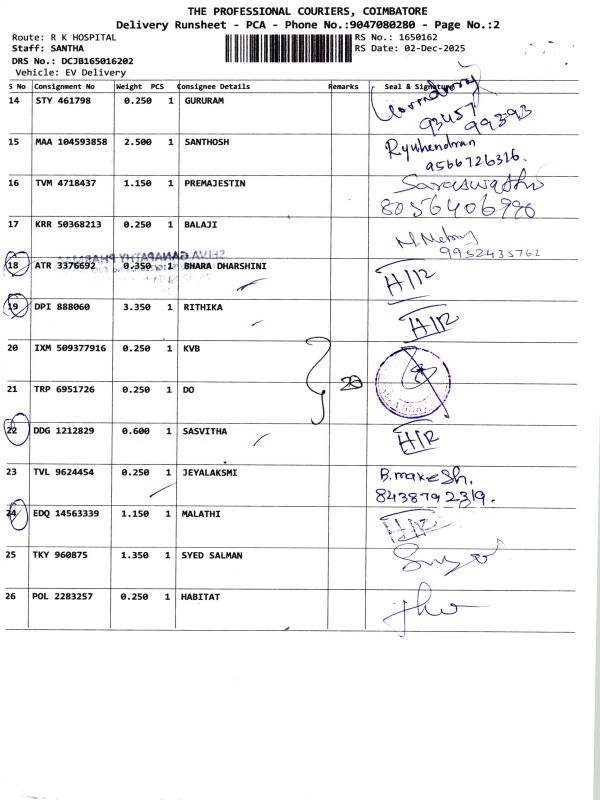 THE PROFESSIONAL COURIERS, COIMBATORE
Delivery Runsheet - PCA - Phone No.:9047080280 - Page No.:2
Route: R K HOSPITAL
RS No.: 1650162
Staff: SANTHA
RS Date: 02-Dec-2025
DRS No.: DCJB165016202
Vehicle: EV Delivery
S No Consignment No Weight PCS Consignee Details Remarks Seal & Signature
14 STY 461798 0.250 1 GURURAM
93457
99393
15 MAA 104593858 2.500 1 SANTHOSH Ryuhendran
9566726326.
16 TVM 4718437 1.150 1 PREMAJESTIN Saraswathi
8056406990
17 KRR 50368213 0.250 1 BALAJI
9952435762
18 ATR 3376692 0.350 1 BHARA DHARSHINI H/R
SELVA GANAPATHY PHARMA
19 DPI 888060 3.350 1 RITHIKA H/R
20 IXM 509377916 0.250 1 KVB
20
21 TRP 6951726 0.250 1 DO
22 DDG 1212829 0.600 1 SASVITHA H/R
23 TVL 9624454 0.250 1 JEYALAKSMI B.makesh.
8438792319.
24 EDQ 14563339 1.150 1 MALATHI H/R
25 TKY 960875 1.350 1 SYED SALMAN
26 POL 2283257 0.250 1 HABITAT